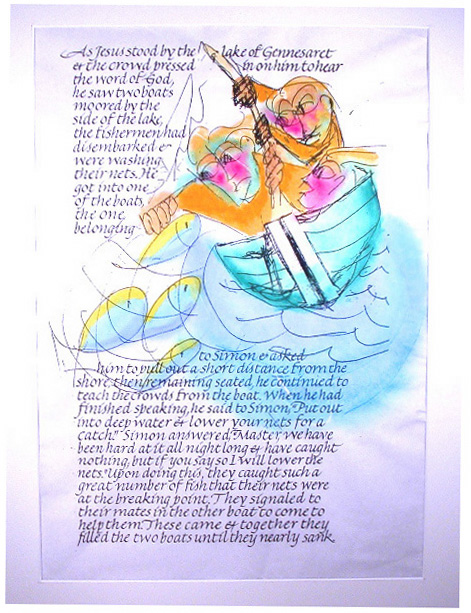 As Jesus stood by the lake of Gennesaret
& the crowd pressed in on him to hear
the word of God,
he saw two boats
moored by the
side of the lake,
the fishermen had
disembarked &
were washing
their nets. He
got into one
of the boats,
the one
belonging
to Simon & asked
him to pull out a short distance from the
shore, then, remaining seated, he continued to
teach the crowds from the boat. When he had
finished speaking, he said to Simon, "Put out
into deep water & lower your nets for a
catch." Simon answered, "Master, we have
been hard at it all night long & have caught
nothing, but if you say so I will lower the
nets. Upon doing this, they caught such a
great number of fish that their nets were
at the breaking point. They signaled to
their mates in the other boat to come to
help them. These came & together they
filled the two boats until they nearly sank.